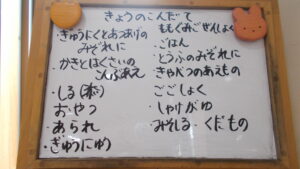 きょうのこんだて
・ぎゅうにくとあつあげの
みぞれに
・かきとはくさいの
こんぶあえ
・しる(茶)
おやつ
・あられ
・ぎゅうにゅう
ももぐみごぜんしょく
・ごはん
・とうふのみぞれに
・きゃべつのあえもの
ごごしょく
・しゃけがゆ
・みそしる・くだもの